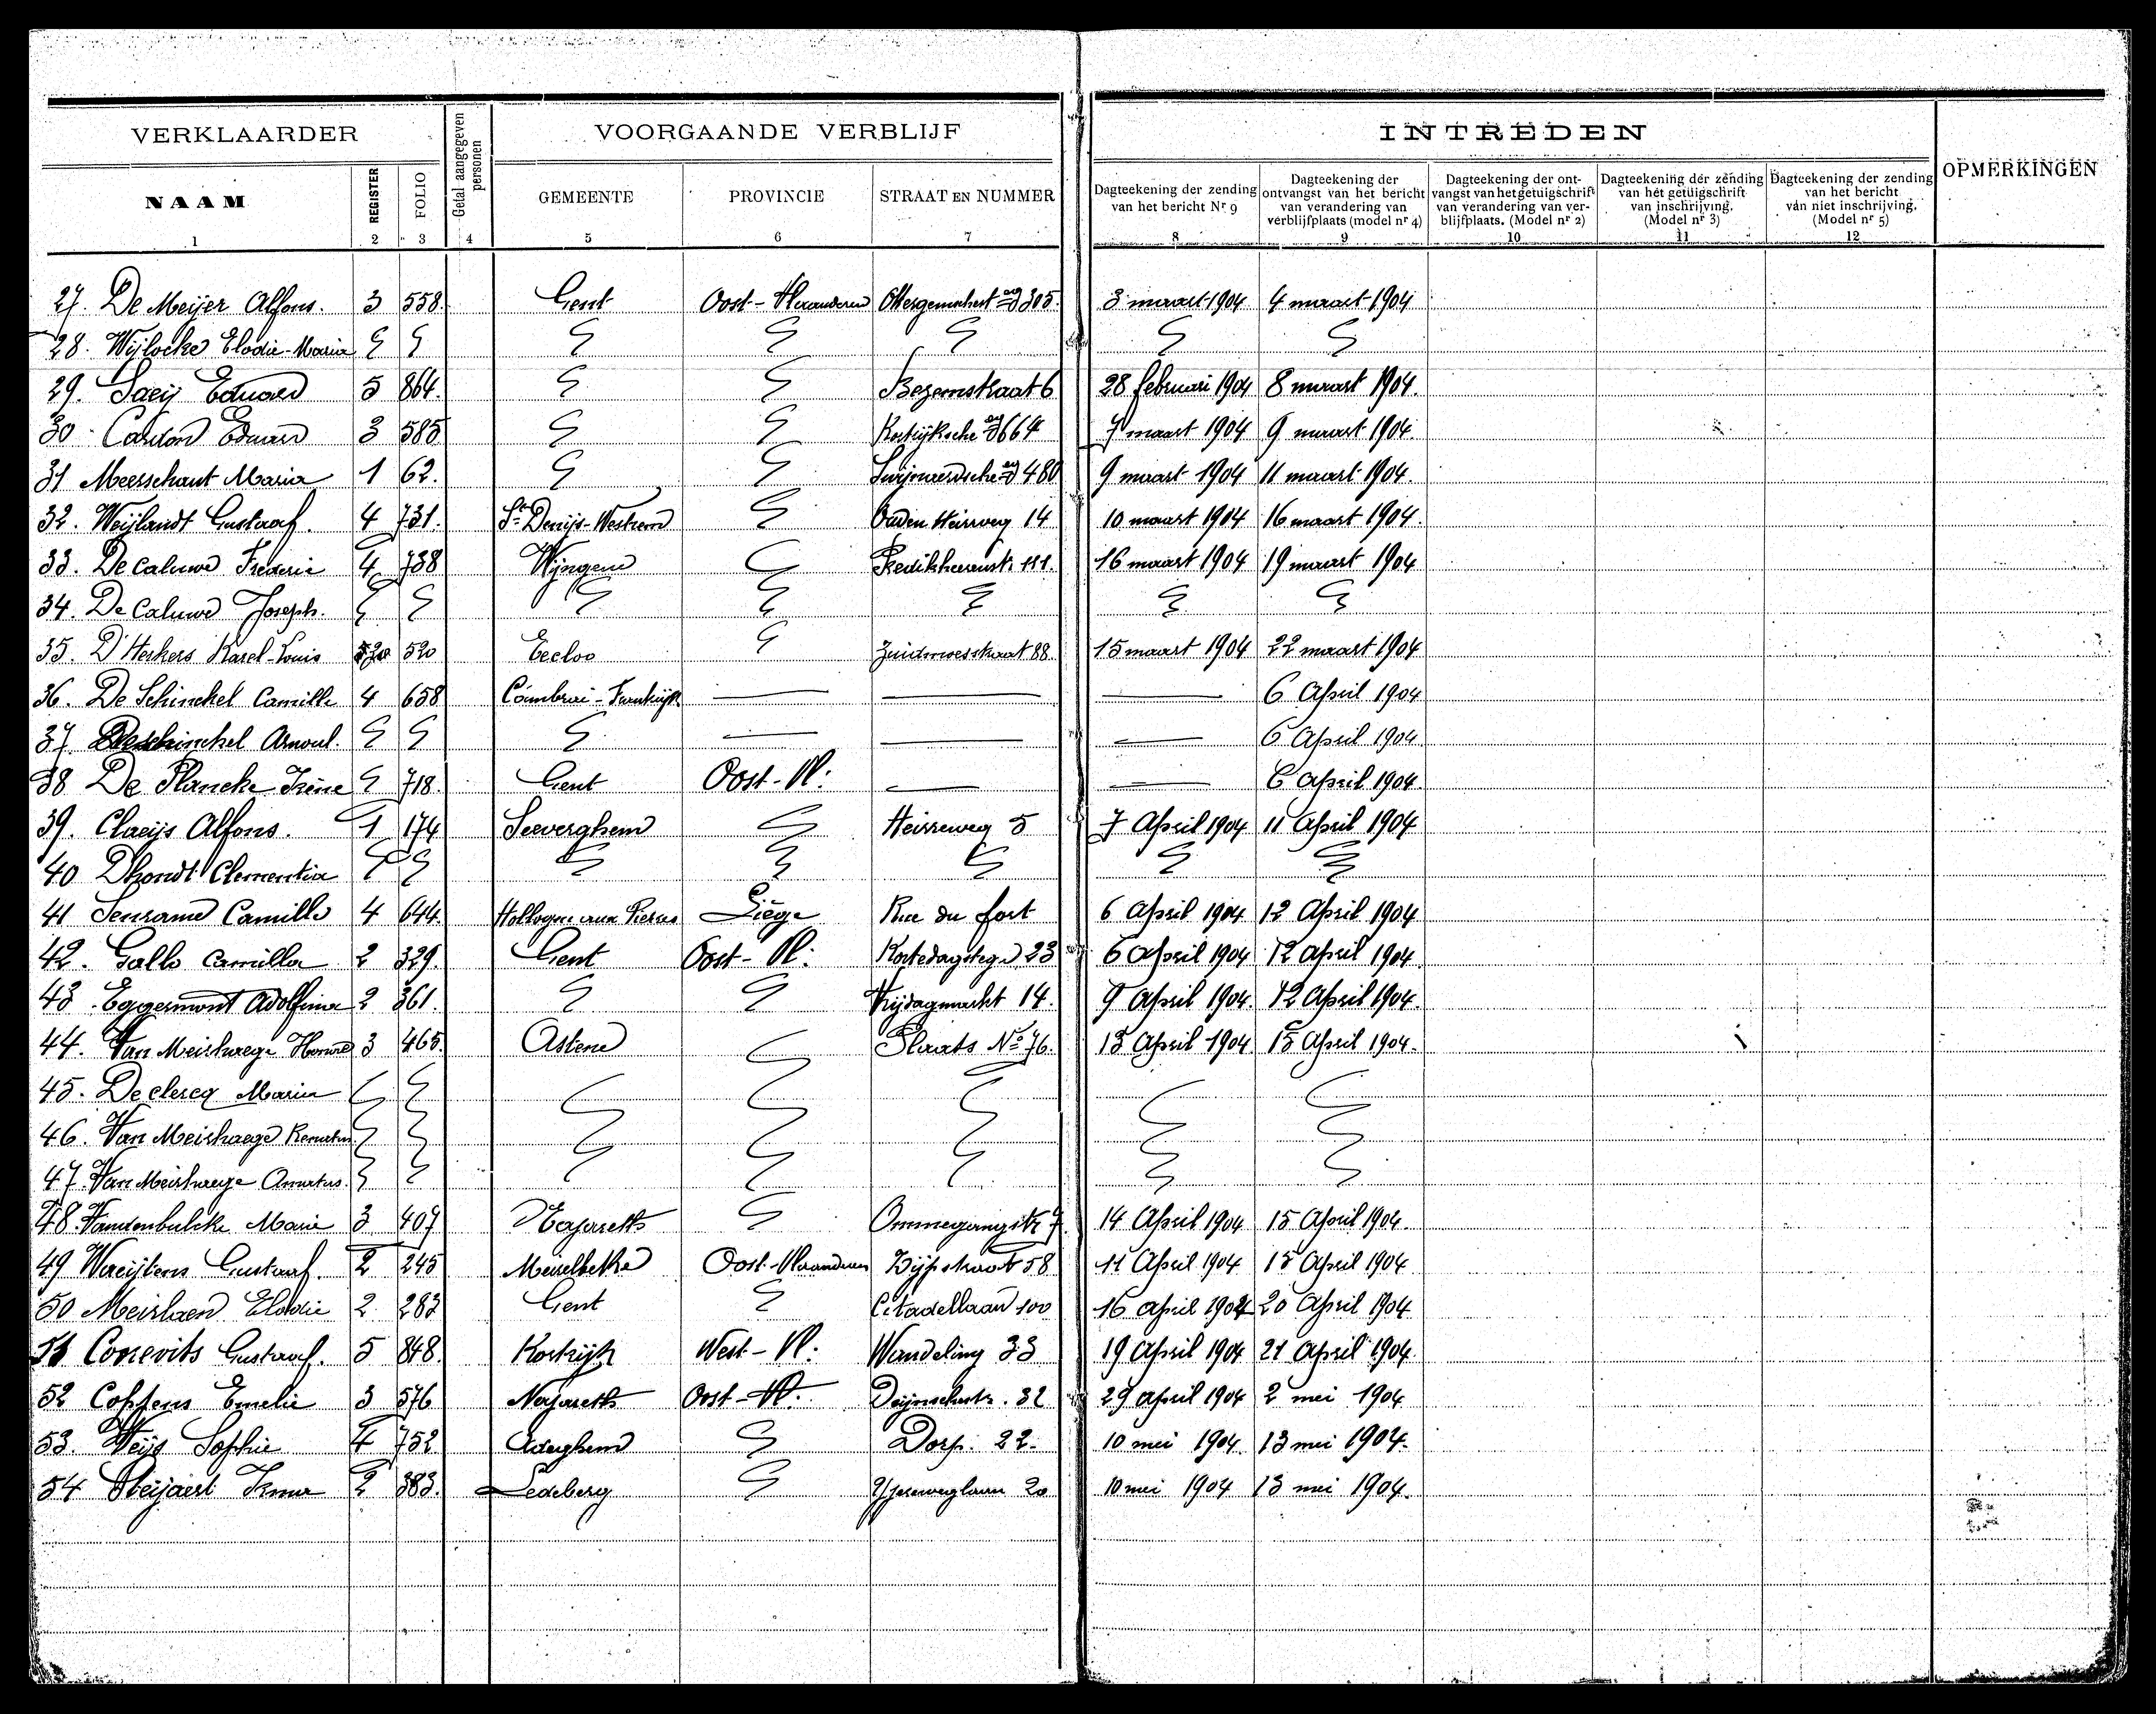 VERKLAARDER
Getal aangegeven personen
VOORGAANDE VERBLIJF
INTREDEN
OPMERKINGEN
NAAM REGISTER FOLIO GEMEENTE PROVINCIE STRAAT EN NUMMER
Dagteekening der zending van het bericht Nr 9
Dagteekening der ontvangst van het bericht van verandering van verblijfplaats (model nr 4)
Dagteekening der ont-vangst van het getuigschrift van verandering van ver-blijfplaats. (Model nr 2)
Dagteekening der zending van het getuigschrift van inschrijving. (Model nr 3)
Dagteekening der zending van het bericht van niet inschrijving. (Model nr 5)
1 2 3 4 5 6 7 8 9 10 11 12
27. De Meijer Alfons. 3 558. Gent Oost-Vlaanderen 305. 3 maart 1904 4 maart 1904
28. Wijlocke Elodie-Maria
29. Saeij Eduard 5 864. Bezemstraat 6 28 februari 1904 8 maart 1904.
30. Cardon Eduard 3 585 Kortrijksche 664 7 maart 1904 9 maart 1904.
31 Meersschaut Maria 1 62. 480 9 maart 1904 11 maart 1904.
32. Weijlandt Gustaaf. 4 731. St Denijs-Westrem Ouden Heirweg 14 10 maart 1904 16 maart 1904.
33. De Caluwe Frederic 4 738 Wijngene 111. 16 maart 1904 19 maart 1904
34. De Caluwe Joseph.
35. D'Herkers Karel-Louis 520 Eecloo Zuidmoerstraat 88 15 maart 1904 22 maart 1904
36. De Schinckel Camille 4 658 6 April 1904
37 Deschinckel Arnoul. 6 April 1904
38 De Plancke Irène 718. Gent Oost-Vl: 6 April 1904.
39. Claeijs Alfons. 1 174 Seeverghem Heirweg 5 7 April 1904 11 April 1904
40 Dhondt Clementia
41 Camille 4 644. Hollogne aux Pierres Liége Rue du fort 6 April 1904 12 April 1904
42. Gallo Camilla 2 329. Gent Oost-Vl: Kortedagsteeg 23 6 April 1904 12 April 1904
43. Eggermont Adolfina 2 361. Vrijdagmarkt 14. 9 April 1904. 12 April 1904.
44. Van Meirhaege Honoré 3 465. Astene Plaats No 76. 13 April 1904 15 April 1904.
45. De clercq Maria
46. Van Meirhaege Renatus
47. Van Meirhaege Amatus.
48. Vandenbulcke Marie 3 407 Nazareth Ommegangstr 7. 14 April 1904 15 April 1904.
49 Waeijtens Gustaaf. 2 245 Meirelbeke Oost-Vlaanderen 58 11 April 1904 15 April 1904.
50 Meirhaen Elodie 2 283 Gent Citadellaan 100 16 april 1904 20 April 1904
51 Correvits Gustaaf. 5 848. Kortrijk West-Vl: Wandeling 33 19 April 1904 21 April 1904.
52 Coppens Emelie 3 576 Nazareth Oost-Vl. 32 29 April 1904 2 mei 1904
53. Weijs Sophie 4 752 Dorp. 22. 10 mei 1904 13 mei 1904.
54 Irma 2 383. Ledeberg 20 10 mei 1904 13 mei 1904.